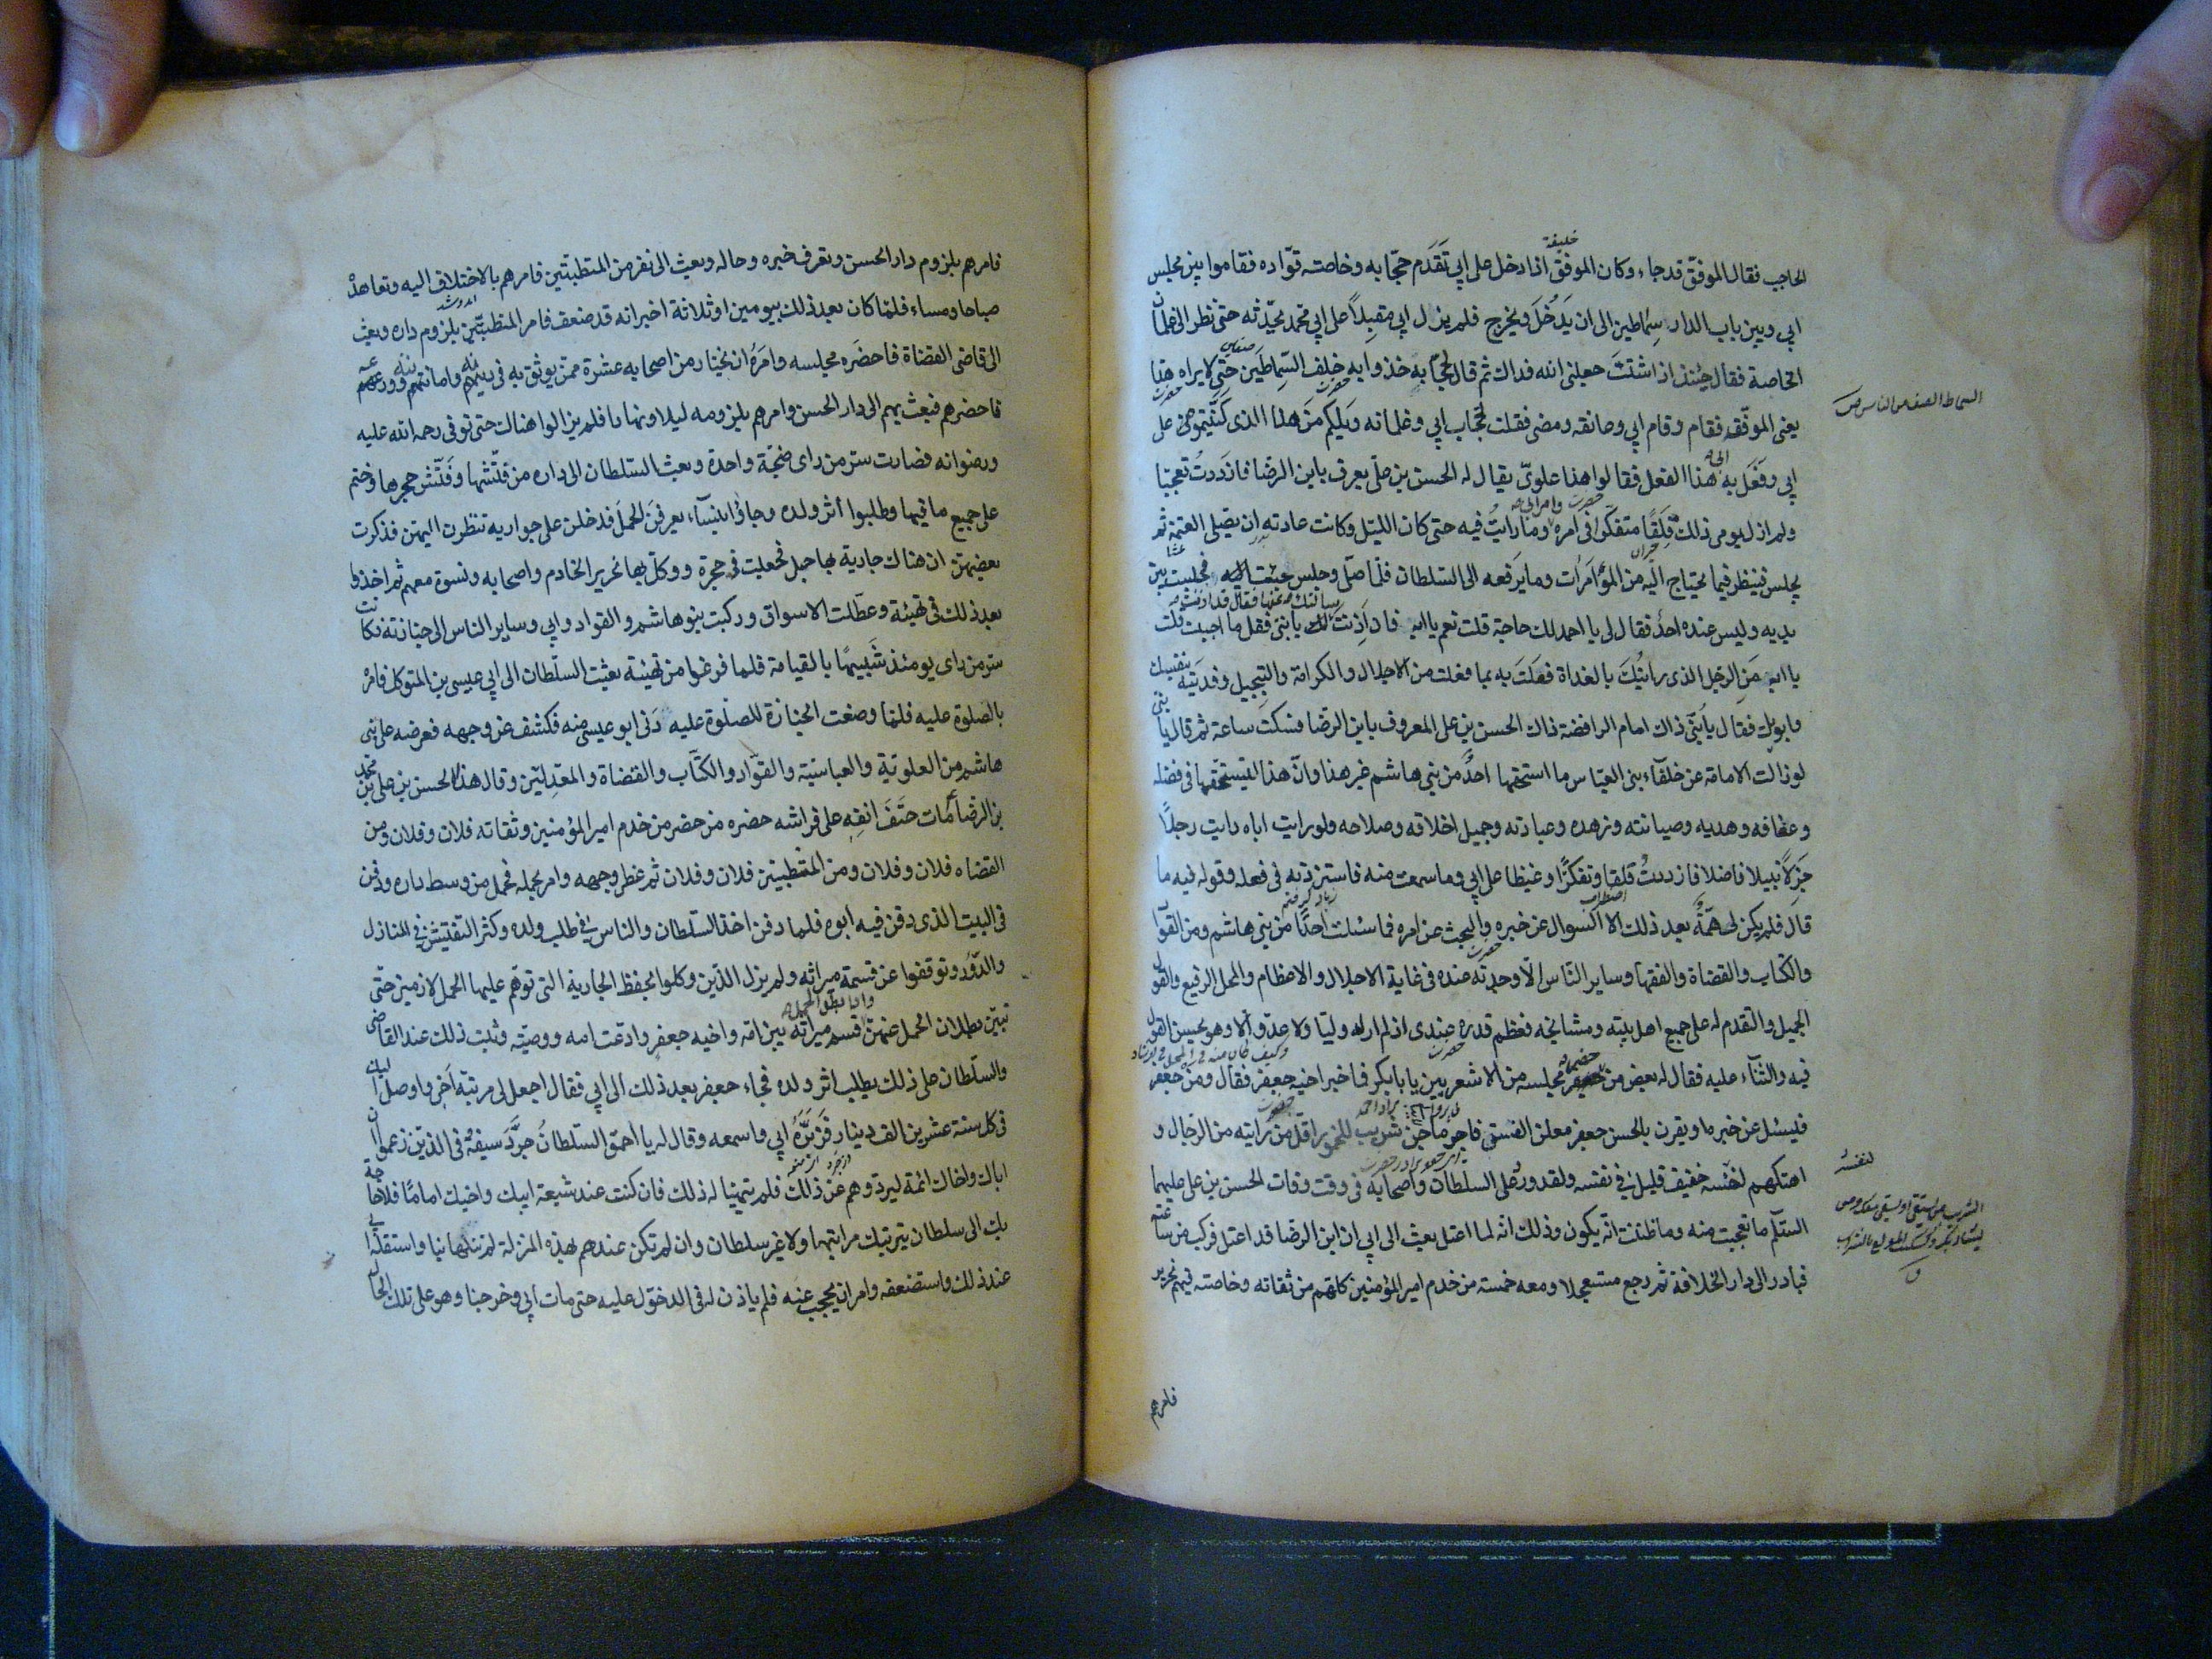 خليفة
الحاجب فقال الموفق قد جاء وكان الموفق اذا دخل على ابي تَقَدم حجّابه وخاصته قوّاده فقاموا بين مجلس
ابي وبين باب الدار سِماطين الى ان يَدخُلَ ويخرج فلم يزل ابي مقبِلاً على ابي محمد يحدّثه حتى نظر الى غلمان
الخاصة فقال حينئذ اذا شئتَ جعلني الله فداك ثم قال لحجّابه خذوا به خلف السِّماطَين حتى لا يراه هذا
يعنى الموفّق فقام وقام ابي وعانقه ومضى فقلت لحجّاب ابي وغلمانه وَيلكم مَن هذا الذى كنّيتموه على
ابي وفَعَل به ابي هذا الفعل فقالوا هذا علوىّ يقال له الحسن بن على يعرف بابن الرضا فازدَدتُ تعجبا
ولم ازل يومى ذلك قلِقًا متفكّرا فى امره وما رايتُ فيه حتى كان الليل وكانت عادته ان يصلى العتمة ثم
يجلس فينظر فيما يحتاج اليه من المؤامَرات وما يرفعه الى السلطان فلمّا صلّ وجلس جئت فجلست بين
يديه وليس عنده احدٌ فقال لى يا احمد لك حاجة قلت نعم يا ابه فان اَذِنتَ سالتك عنها فقال قد اذنت لك يا بنىّ فقل ما احببت قلت
يا ابه مَنِ الرجل الذى رايتُك بالغداة فعلتَ به ما فعلت من الاجلال والكرامة والتبجيل وفديته بنفسك
وابويك فقال يا بُنىّ ذاك امام الرافضة ذاك الحسن بن على المعروف بابن الرضا فسكت ساعة ثم قال يا بنى
لو زالت الامامة عن خلفآء بنى العباس ما استحقها احدٌ من بنى هاشم غير هذا وانّ هذا ليستحقها فى فضله
وعفافه وهديه وصيانته وزهده وعبادته وجميل اخلاقه وصلاحه ولو رايت اباه رايت رجلاً
جَزِلاً نبيلا فاضلا فازددتُ قلقا وتفكرًا وغيظا على ابي وما سمعت منه فاستزدته فى فعله وقوله فيه ما
قال فلم يكن لى هِمّةٌ بعد ذلك الا السوال عن خبره والبحث عن امره فما سئلت احدًا من بنى هاشم ومن القوّاد
والكتّاب والقضاة والفقها وساير الناس الّا وجدته عنده فى غاية الاجلال والاعظام والمحل الرفيع والقول
الجميل والتقدم له على جميع اهل بيته ومشايخه فعظم قدره عندى اذ لم ار له وليّا ولا عدوّا الا وهو يحسن القول
فيه والثنآء عليه فقال له بعض من حضر مجلسه من الاشعريين يا بابكر فما خبر اخيه جعفر فقال ومن جعفر
فيسئل عن خبره او يقرن بالحسن جعفر معلن الفسق فاجر ماجن شرّيب للخمور اقل من رايته من الرجال و
اهتكهم لنفسه خفيف قليل فى نفسه ولقد ورد على السلطان واصحابه فى وقت وفات الحسن بن على عليهما
السلم ما تعجبت منه وما ظننت انّه يكون وذلك انّه لما اعتل بعث الى ابي ان ابن الرضا قد اعتل فركب من ساعته
فبادر الى دار الخلافة ثم رجع مستعجلا ومعه خمسة من خدم امير المؤمنين كلهم من ثقاته وخاصته فيهم نحرير
فامرهم
فامرهم بلزوم دار الحسن وتعرف خبره وحاله وبعث الى نفر من المتطببين فامرهم بالاختلاف اليه وتعاهده
صباحا ومساء فلمّا كان بعد ذلك بيومين او ثلاثة اخبر انه قد ضعف فامر المتطببين بلزوم داره وبعث
الى قاضى القضاة فاحضَره مجلسه وامَرهُ ان يختار من اصحابه عشرة ممن يوثق به فى دينه وامانته وورعه
فاحضرهم فبعث بهم الى دار الحسن وامرهم بلزومه ليلا ونهارا فلم يزالوا هناك حتى توفى رحمه الله عليه
ورضوانه فصارت سرّ من راى ضجّة واحدة وبعث السّلطان الى داره من فتّشها وفتّش حجرها وختم
على جميع ما فيها وطلبوا أثر ولده وجاؤا بنسآء يعرفنَ الحمل فدخلن على جواريه تنظرن اليهن فذكرت
بعضهن ان هناك جارية بها حبل فجعلت فى حجرة ووكّل بها نحرير الخادم واصحابه ونسوة معهم ثم اخذوا
بعد ذلك فى تهيئة وعطّلت الاسواق وركبت بنو هاشم والقواد وابي وساير الناس الى جنازته فكانت
سرّ من راى يومئذ شَبيهًا بالقيامة فلما فرغوا من تهيئة بعث السلطان الى ابي عيسى بن المتوكل فامره
بالصلوة عليه فلمّا وضعت الجنازة للصلوة عليه دَنى ابو عيسى منه فكشف عن وجهه فعرضه على بنى
هاشم من العلوية والعباسية والقوّاد والكتّاب والقضاة والمعدلين وقال هذا الحسن بن على بن محمد
بن الرضا مات حتَفَ انفِه على فراشه حضره من حضر من خدم امير المؤمنين وثقاته فلان وفلان ومن
القضاه فلان وفلان ومن المتطببين فلان وفلان ثم غطى وجهه وامر بحمله فحمل من وسط داره ودفن
فى البيت الذى دفن فيه ابوه فلما دفن اخذ السّلطان والناس فى طلب ولده وكثر التفتيش فى المنازل
والدّور وتوقفوا عن قسمة ميراثه ولم يزل الذين وكلوا بحفظ الجارية التى توهّم عليها الحمل لازمين حتّى
تبيّن بطلان الحمل فلما بطل الحمل عنهنّ قسم ميراثه بين امّه واخيه جعفر وادّعت امه ووصيّته وثبت ذلك عند القاضى
والسلطان على ذلك يطلب اثر ولده فجاء جعفر بعد ذلك الى ابي فقال اجعل لى مرتبة اخى واوصل اليك
فى كل سنة عشرين الف دينار فزبَرَهُ ابي واسمعه وقال له يا احمق السّلطانُ جرّد سيفهُ فى الذين زعموا ان
اباك واخاك ائمة ليردّوهم عن ذالك فلم يتهيّا له ذلك فان كنت عند شيعة ابيك واخيك امامًا فلا حاجة
بك الى سلطان يرتبك مراتبهما ولا غير سلطان وان لم تكن عندهم بهذه المنزلة لم تنلها بنا واستقله ابي
عند ذلك واستضعفه وامر ان يحجب عَنه فلم ياذن له فى الدخول عليه حتى مات ابي وخرجنا وهو على تلك الحال